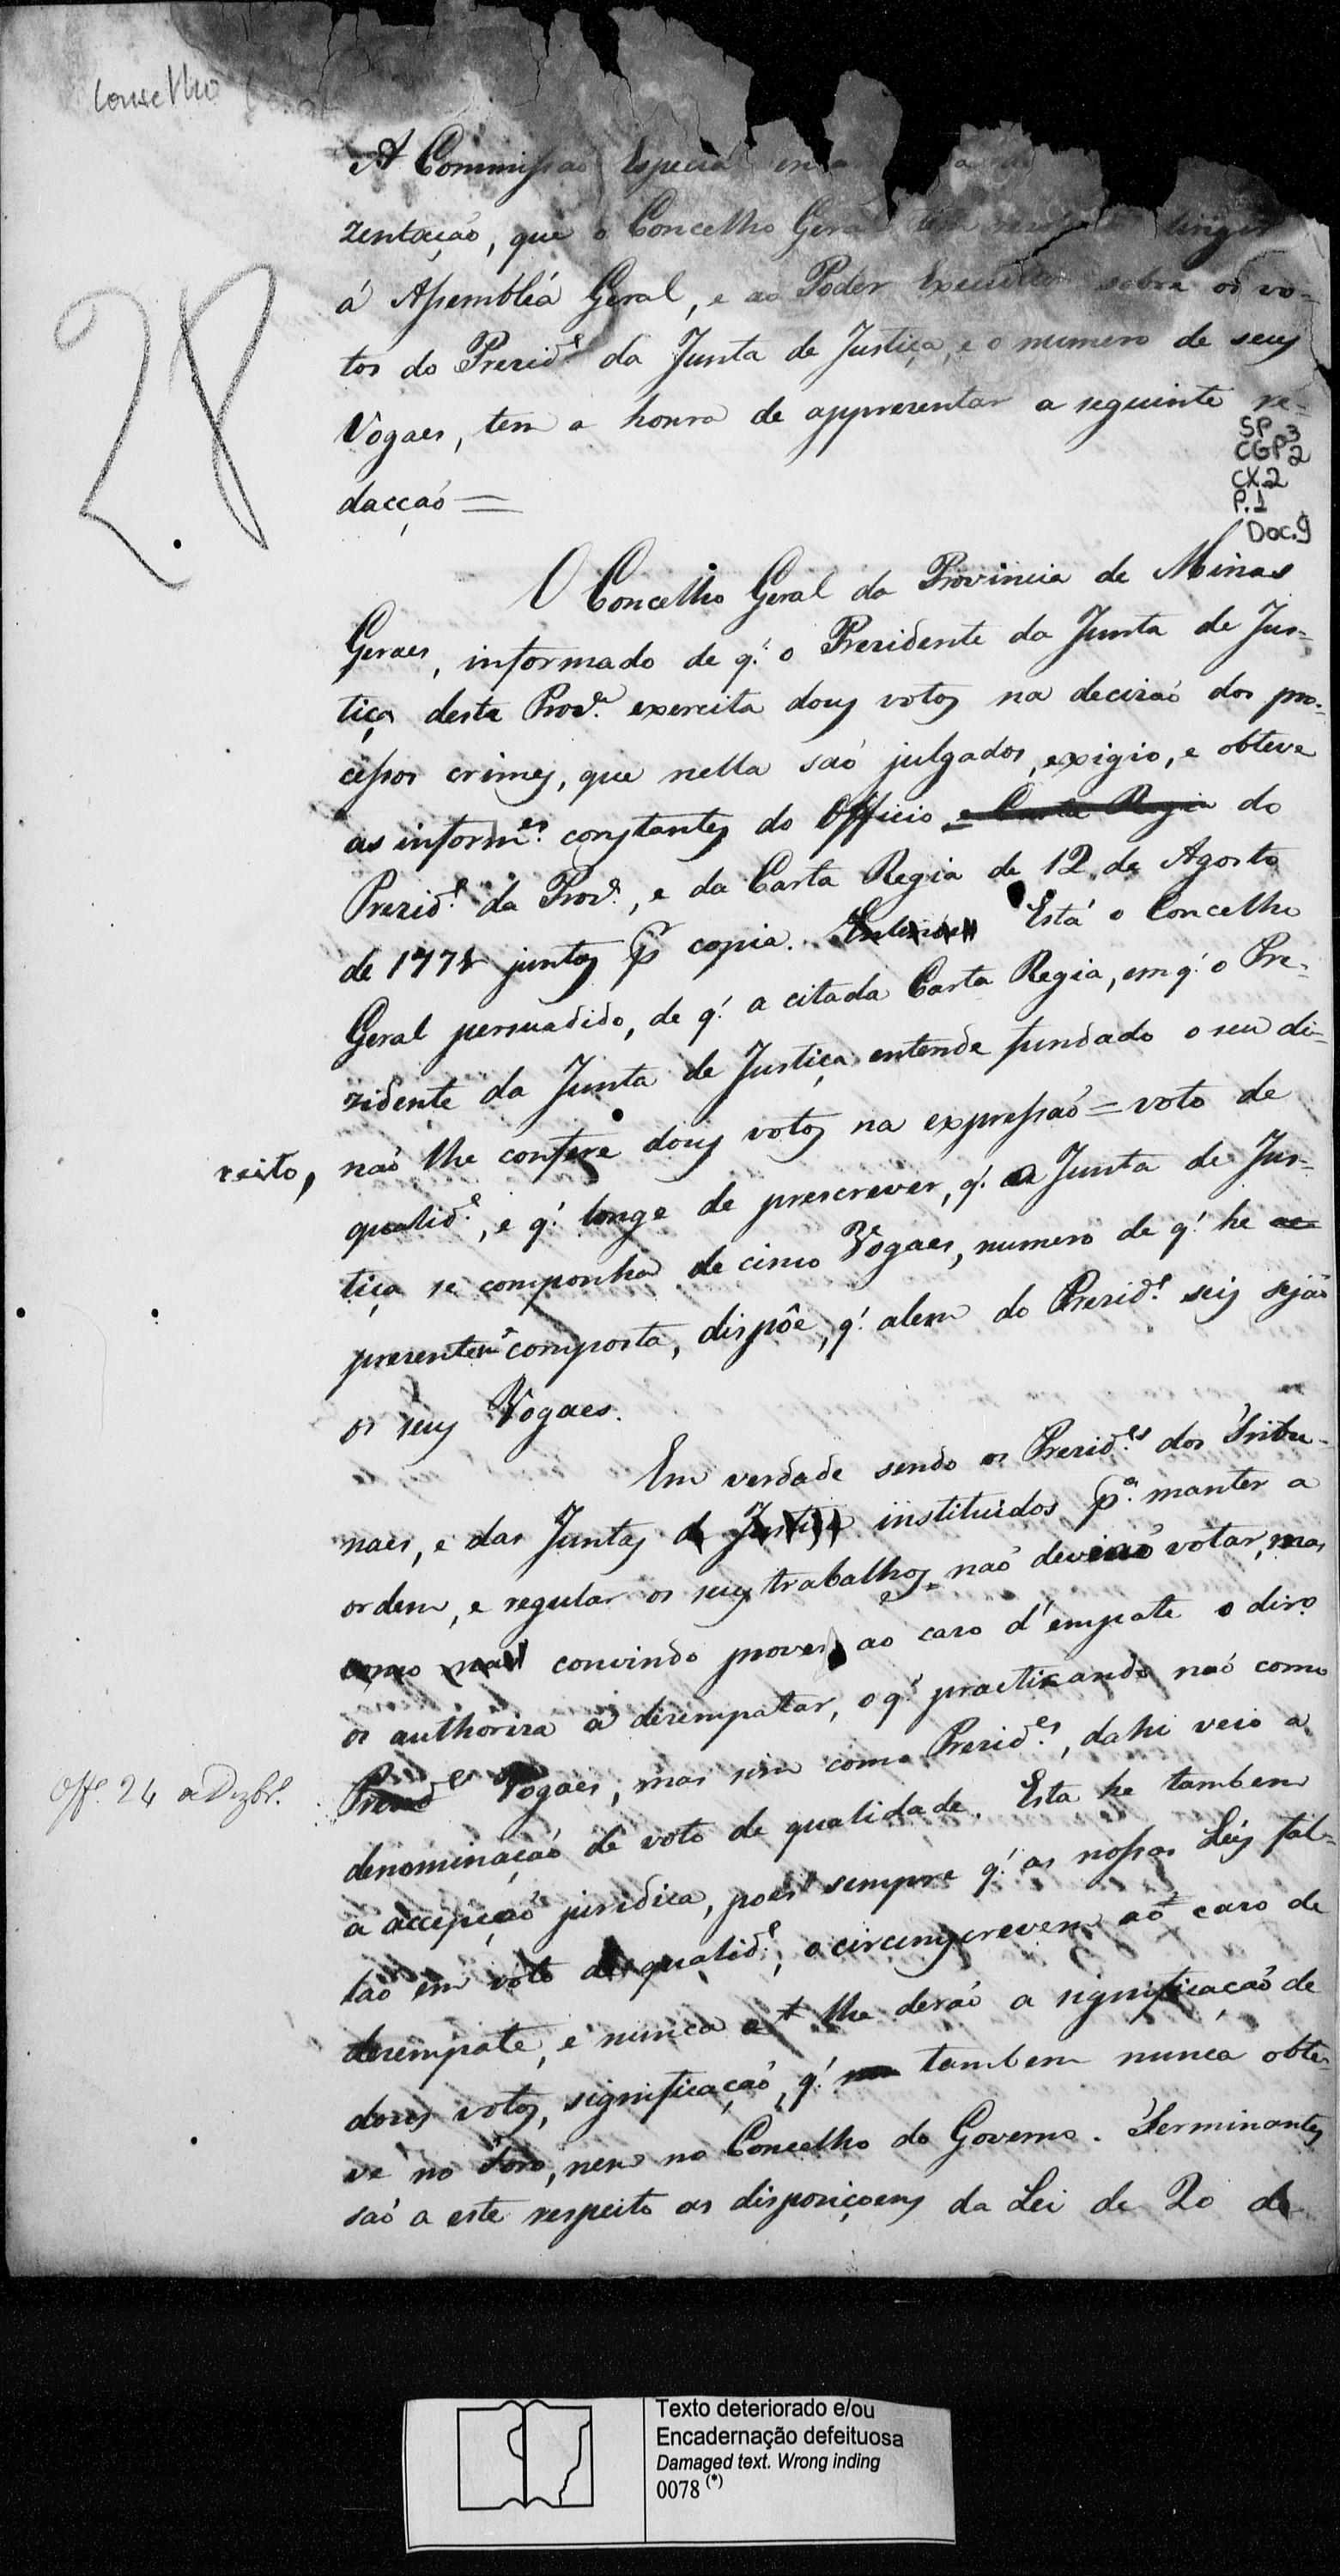 Conselho Geral
A Commissaõ Especial
zentaçaõ, que o Concelho Geral tem dirigir
á Assembléa Geral, e ao Poder Executivo sobre os vo-
tos do Prezid.e da Junta de Justiça, e o numero de seus
Vogaes, tem a honra de appresentar a seguinte re-
dacçaõ =
28
SP
CGP 3
2
CX.2
P.1
Doc.9
O Concelho Geral da Provincia de Minas
Geraes, informado de q.' o Prezidente da Junta de Jus-
tiça desta Prov.a exercita dous votos na decizaõ dos pro-
cessos crimes, que nella saõ julgados, exigio, e obteve
as inform.es constantes do Officio e Carta Regia do
Prezid.e da Prov.a, e da Carta Regia de 12 de Agosto
de 1771 juntos p.r copia. Está o Concelho
Geral persuadido, de q.' a citada Carta Regia, em q.' o Pre-
zidente da Junta de Justiça entende fundado o seu di-
reito, naõ lhe confere dous votos na expressaõ = voto de
qualid.e, e q.' longe de prescrever, q.' a Junta de Jus-
tiça se componha de cinco Vogaes, numero de q.' he
presentem.e composta, dispõe, q.' alem do Prezid.e seis sejaõ
os seus Vogaes.
Em verdade sendo os Prezid.es dos Tribu-
naes, e das Juntas de Justiça instituidos p.a manter a
ordem, e regular os seus trabalhos, naõ deviaõ votar, mas
como convindo prover ao cazo d'empate o dir.o
os authoriza a dezempatar, o q.' practicando naõ como
Off. 24 a Dezbr.o
Prezid.es Vogaes, mas sim como Prezid.es, dahi veio a
denominaçaõ de voto de qualidade. Esta he tambem
a accepçaõ juridica, pois sempre q.' as nossas Leis fal-
laõ em voto de qualid.e, o circunscrevem ao cazo de
dezempate, e nunca lhe deraõ a significaçaõ de
dous votos, significaçaõ, q.' tambem nunca obte-
ve no Foro, nem no Concelho do Governo. Terminantes
saõ a este respeito as disposiçoens da Lei de 20 de
Texto deteriorado e/ou
Encadernação defeituosa
Damaged text. Wrong inding
0078 (*)